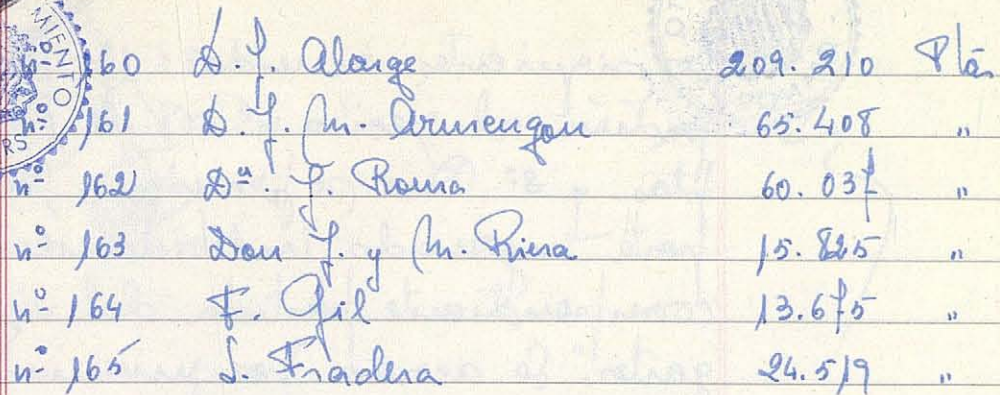 nº 160 D. J. Alorge 209.210 Ptas
nº 161 D. J. M. Armengou 65.408 "
nº 162 Dª J. Roma 60.037 "
nº 163 Don J. y M. Riera 15.825 "
nº 164 F. Gil 13.675 "
nº 165 S. Fradera 24.519 "
MIENTO